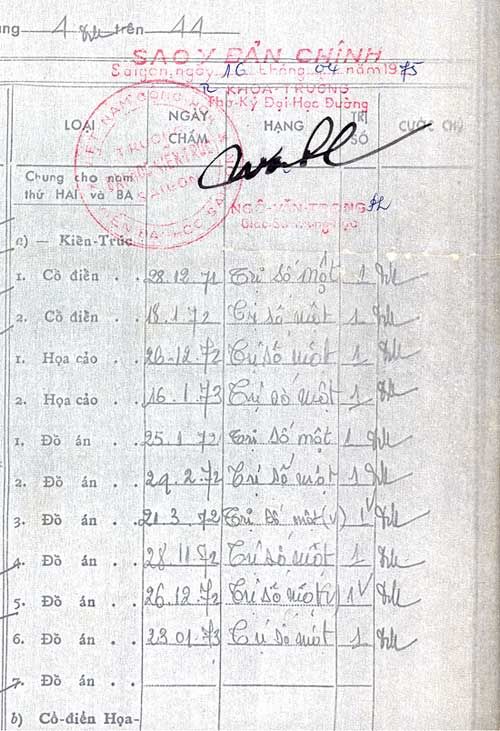 4 trên 44
SAO Y BẢN CHÍNH
Saigon, ngày 16 tháng 04 năm 1975
KHOA-TRƯỞNG
Thơ-Ký Đại-Học Đường
LOẠI NGÀY CHẤM HẠNG TRỊ SỐ CƯỚC CHÚ
Chung cho năm
thứ HAI và BA
NGÔ-VĂN-TRỌNG
a) — Kiến-Trúc
1. Cổ điển . . 28.12.71 Trị số một 1
2. Cổ điển . . 18.1.72 Trị số một 1
1. Họa cảo . . 26-12.72 Trị số một 1
2. Họa cảo . . 16.1.73 Trị số một 1
1. Đồ án . . 25.1.72 Trị số một 1
2. Đồ án . . 29.2.72 Trị số một 1
3. Đồ án . . 21.3.72 Trị số một (v) 1
4. Đồ án . . 28.11.72 Trị số một 1
5. Đồ án . . 26.12.72 Trị số một (v) 1
6. Đồ án . . 23.01.73 Trị số một 1
7. Đồ án . .
b) Cổ-điển Họa-